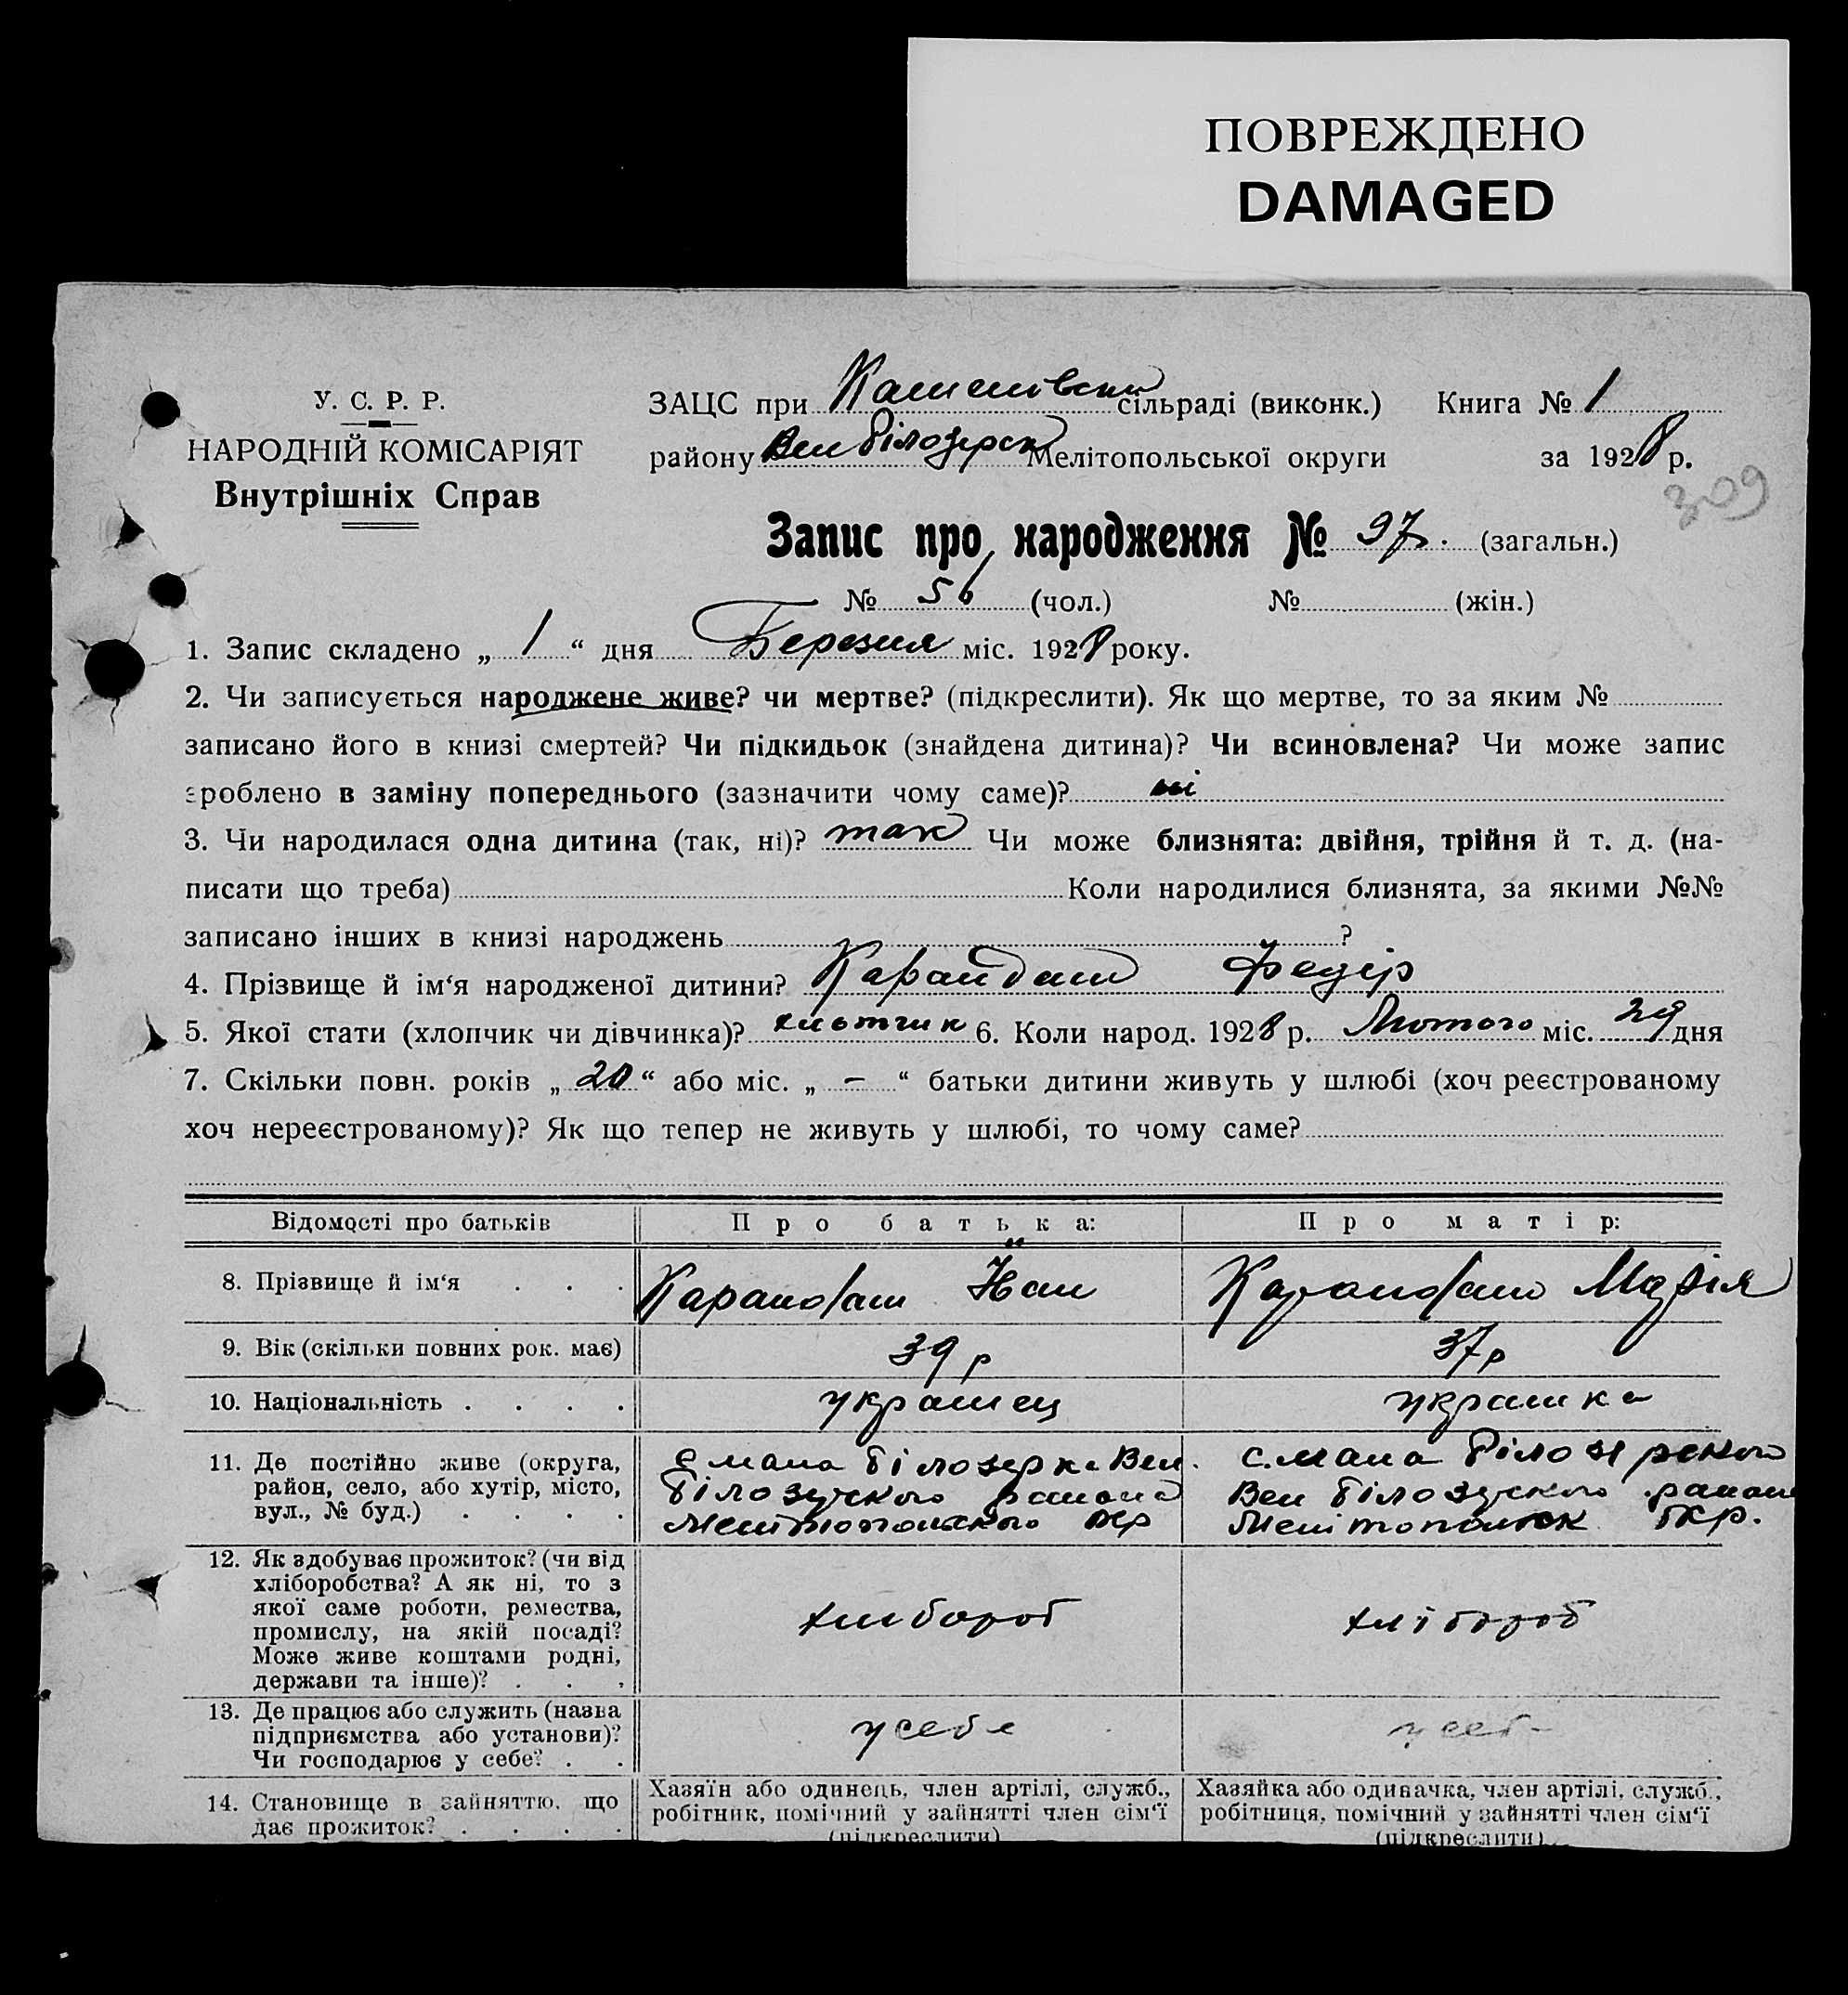 ПОВРЕЖДЕНО
DAMAGED
У. С. Р. Р.
НАРОДНІЙ КОМІСАРІЯТ
Внутрішніх Справ
ЗАЦС при сільраді (виконк.) Книга № 1
району Вел Білозерск Мелітопольської округи за 1928 р.
309
Запис про народження № 97. (загальн.)
№ 56 (чол.) № (жін.)
1. Запис складено „ 1 “ дня Березня міс. 1928 року.
2. Чи записується народжене живе? чи мертве? (підкреслити). Як що мертве, то за яким №
записано його в книзі смертей? Чи підкидьок (знайдена дитина)? Чи всиновлена? Чи може запис
зроблено в заміну попереднього (зазначити чому саме)? ні
3. Чи народилася одна дитина (так, ні)? так Чи може близнята: двійня, трійня й т. д. (на-
писати що треба) Коли народилися близнята, за якими №№
записано інших в книзі народжень ?
4. Прізвище й ім‘я народженої дитини? Карандаш Федір
5. Якої стати (хлопчик чи дівчинка)? хлопчик 6. Коли народ. 1928 р. Лютого міс. 29 дня
7. Скільки повн. років „ 20 “ або міс. „ — “ батьки дитини живуть у шлюбі (хоч реєстрованому
хоч нереєстрованому)? Як що тепер не живуть у шлюбі, то чому саме?
Відомості про батьків Про батька: Про матір:
8. Прізвище й ім‘я . . . Карандаш Іван Карандаш Марія
9. Вік (скільки повних рок. має) 39 р 37 р
10. Національність . . . . украинец украинка
11. Де постійно живе (округа,
район, село, або хутір, місто,
вул., № буд.) . . . .
с мала Білозерка Вел.
Білозерского района
Мелітопольского окр
с. мала Білозерского
Вел Білозерского район
Мелітопольск окр.
12. Як здобуває прожиток? (чи від
хліборобства? А як ні, то з
якої саме роботи, ремества,
промислу, на якій посаді?
Може живе коштами родні,
держави та інше)? . . .
хлибороб
хлібороб
13. Де працює або служить (назва
підприємства або установи)?
Чи господарює у себе? . .
у себе
у себе
14. Становище в зайняттю, що
дає прожиток? . . . .
Хазяїн або одинець, член артілі, служб.,
робітник, помічний у зайнятті член сім‘ї
(підкреслити)
Хазяйка або одиначка, член артілі, служб.,
робітниця, помічний у зайнятті член сім‘ї
(підкреслити)